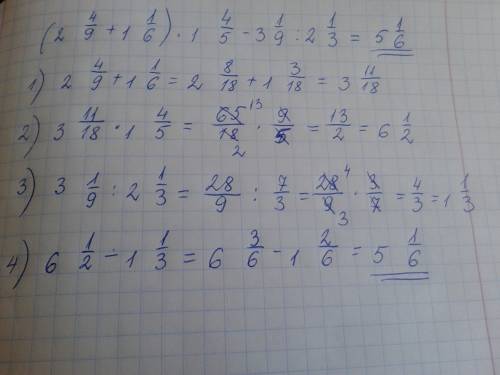 (2 4/9 + 1 1/6) · 1 4/5 - 3 1/9 : 2 1/3 = 5 1/6
1) 2 4/9 + 1 1/6 = 2 8/18 + 1 3/18 = 3 11/18
2) 3 11/18 · 1 4/5 = 65 13/18 2 · 9/5 = 13/2 = 6 1/2
3) 3 1/9 : 2 1/3 = 28/9 : 7/3 = 28 4/9 3 · 3/7 = 4/3 = 1 1/3
4) 6 1/2 - 1 1/3 = 6 3/6 - 1 2/6 = 5 1/6